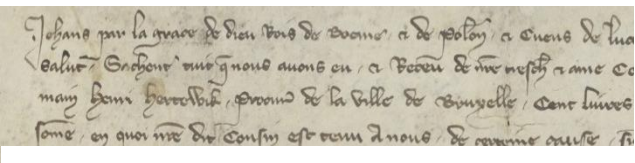 Johans par la grace de dieu Rois de Boeme · et de Polon · et Cuens de Luc
Salut Sachent tuit q nous avons eu · et Receu de nre tresch et ame Co
main Henri Hertewik · Proour de la ville de Bruxelle · Cent livres
some · en quoi nre dit Cousin est tenu A nous · de certeine cause ·